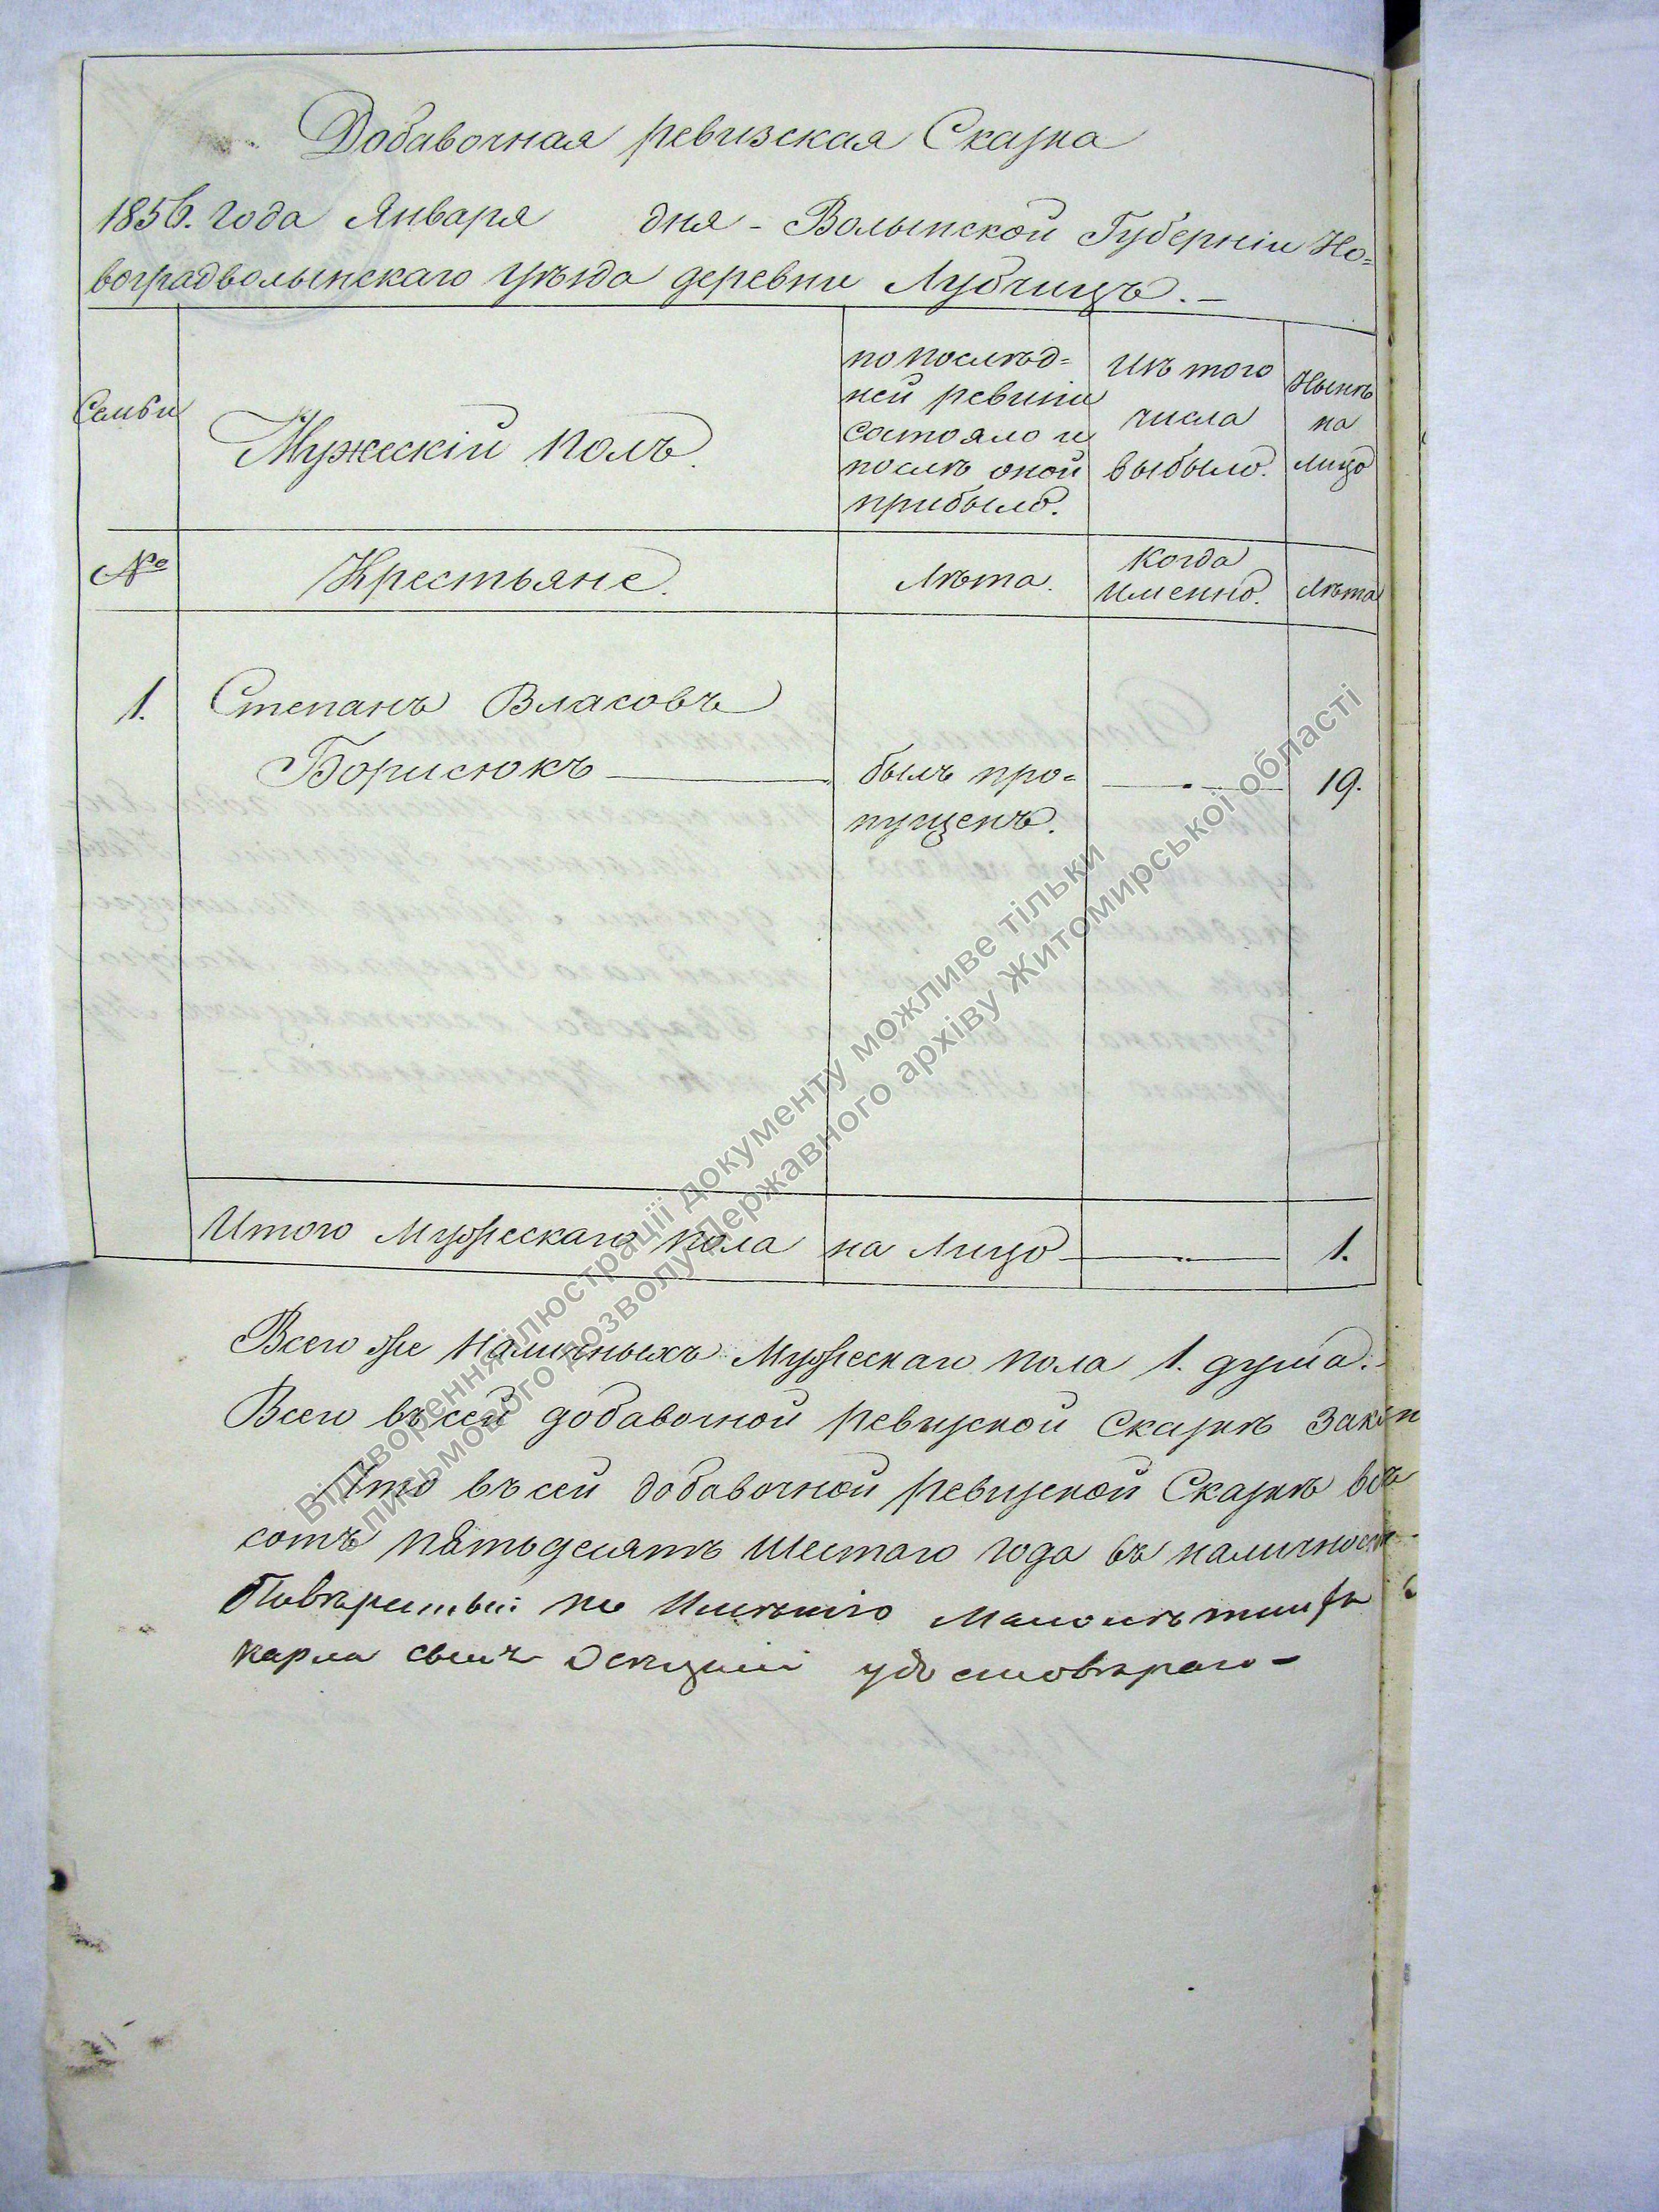 Добавочная ревизская Сказка
1856. года Января дня - Волынской Губерніи Но=
воградволынскаго уѣзда деревни Лубчицъ. –
Семьи
Мужескій полъ.
по послѣд=
ней ревизіи
состояло и
послѣ оной
прибыло.
Изъ того
числа
выбыло.
Нынѣ
на
лицо
№
Крестьяне.
Лѣта.
Когда
Именно.
Лѣта
1. Степанъ Власовъ
Борисюкъ
былъ про=
пущенъ.
19.
Итого Мужескаго пола на Лицо 1.
Всего же Наличныхъ Мужескаго пола 1. душа.
Всего въ сей добавочной ревизской Сказкѣ
Что въ сей добавочной ревизской Сказкѣ всѣ
сотъ пятьдесятъ Шестаго года въ наличност
по Имѣнію
карла удостовѣраю –
Відтворення ілюстрації документу можливе тільки
письмового дозволу Державного архіву Житомирської області